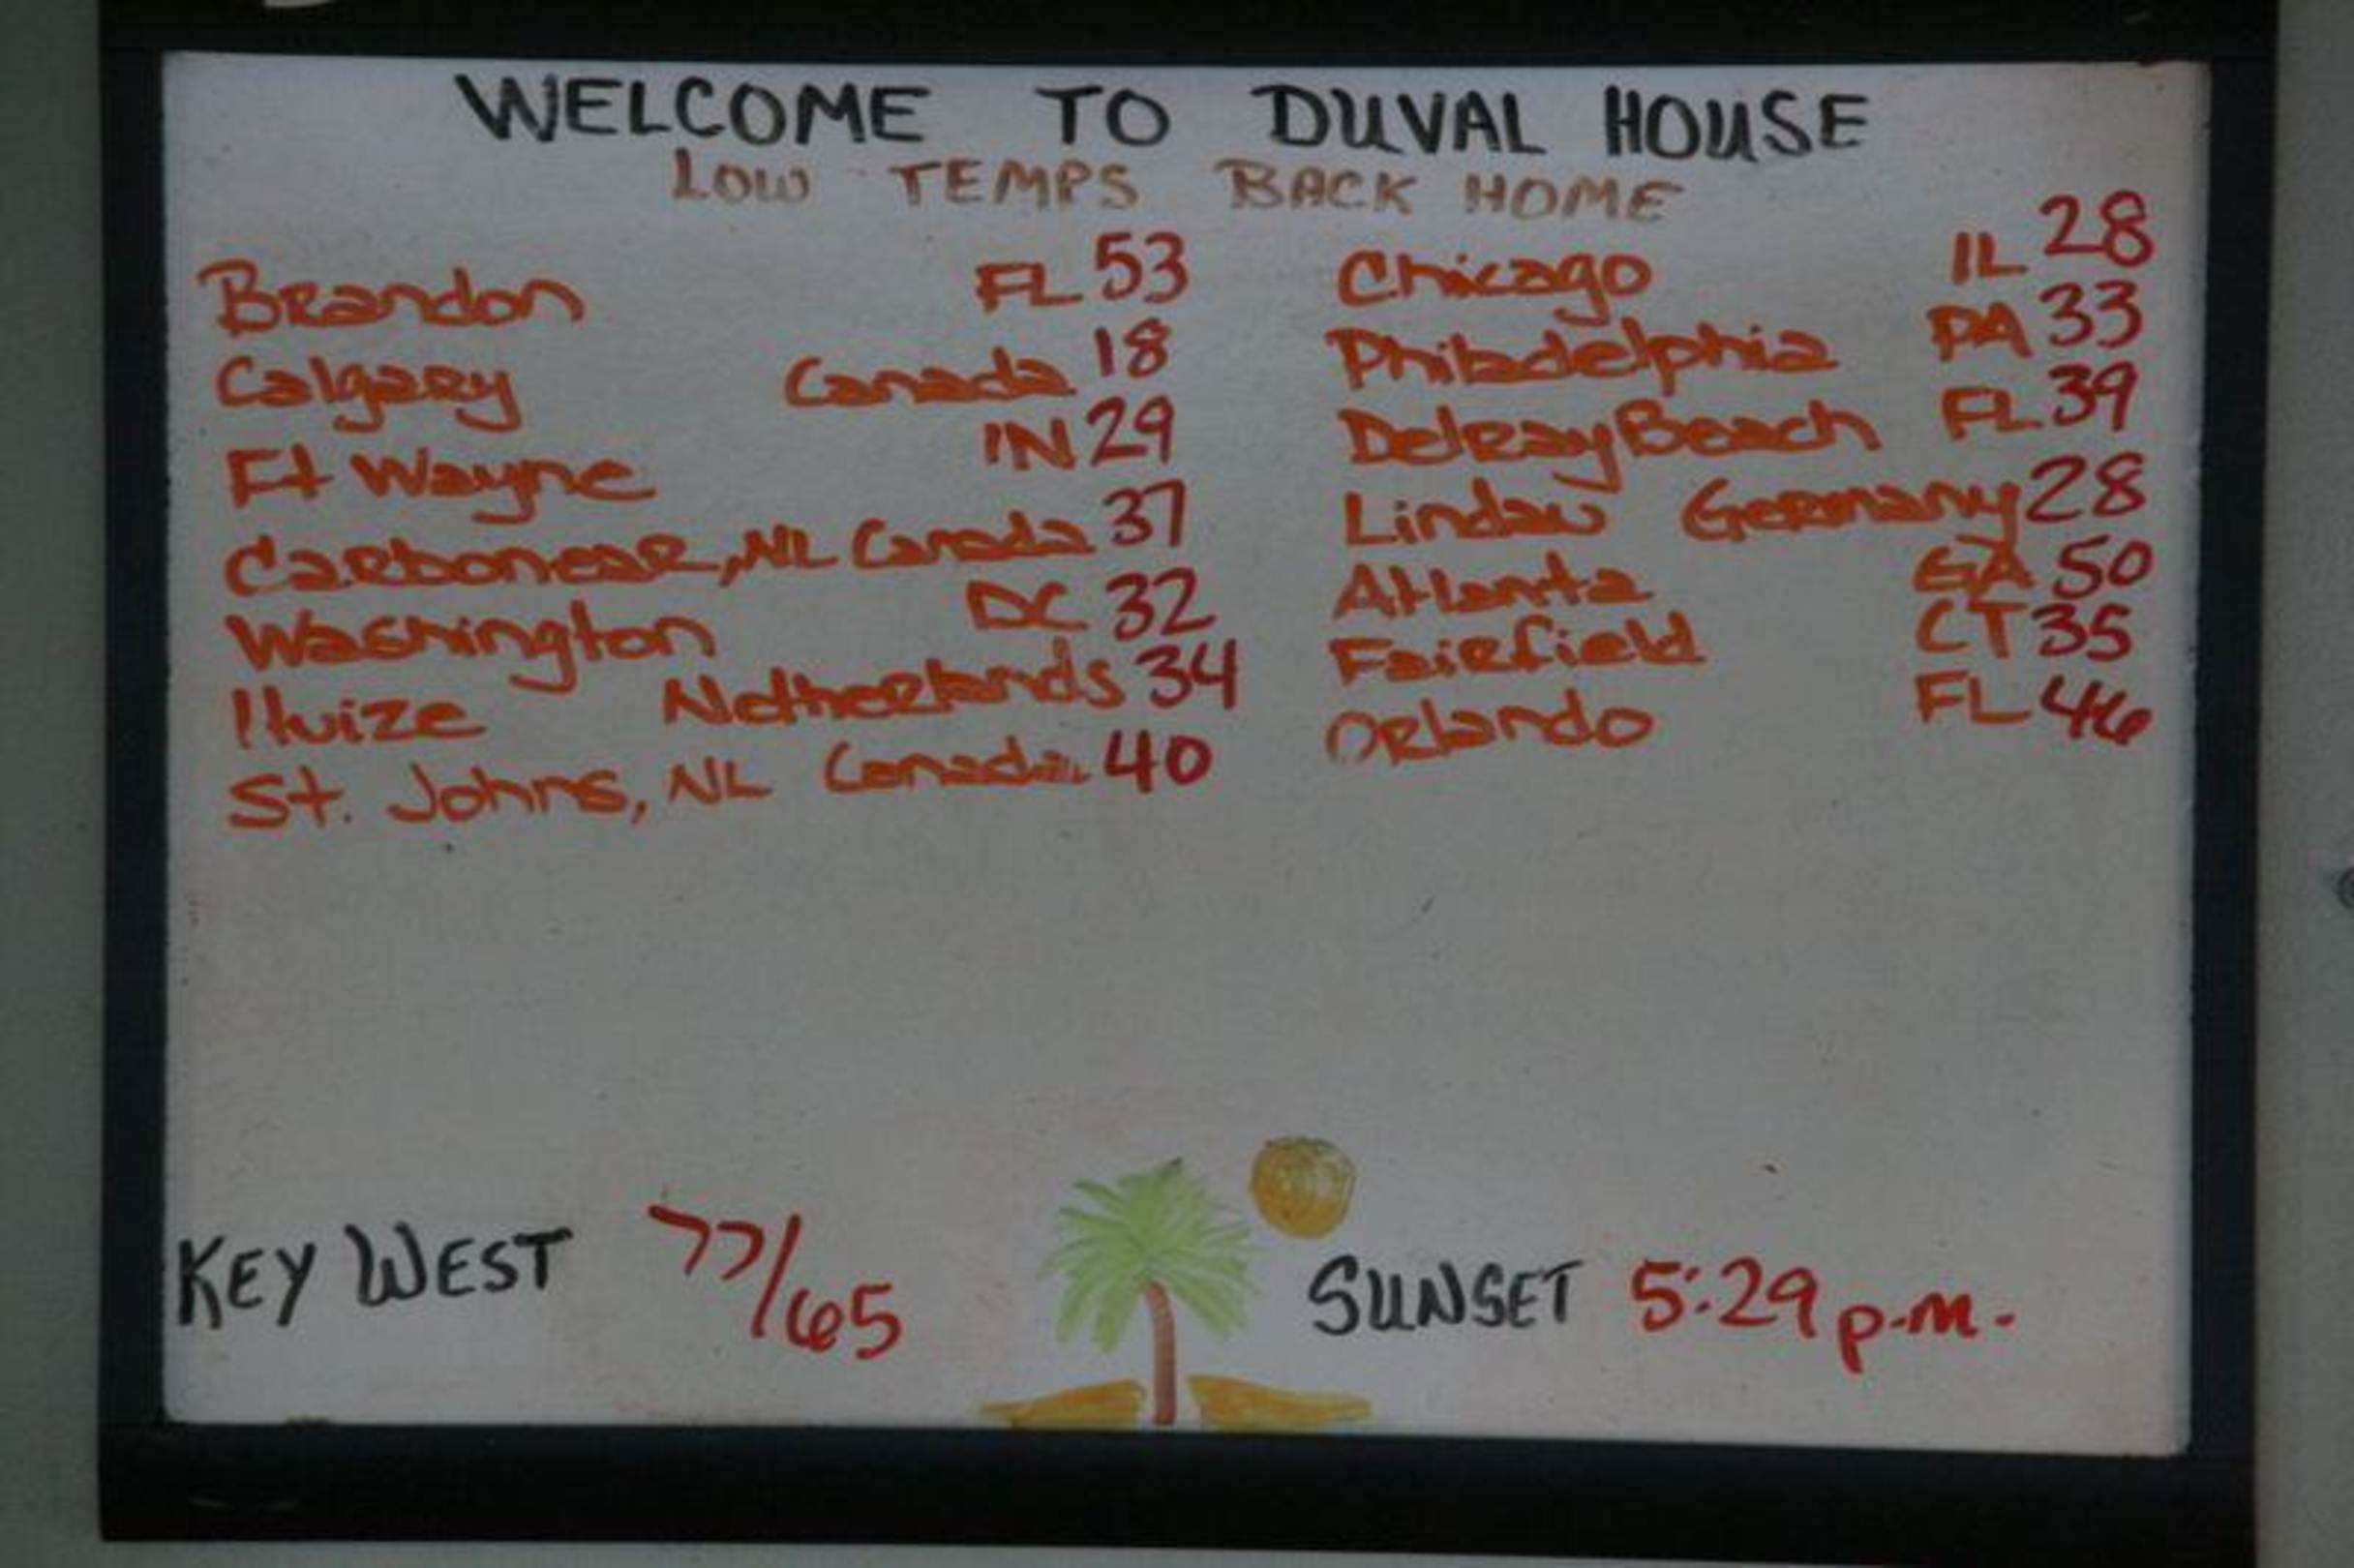 WELCOME TO DUVAL HOUSE
LOW TEMPS BACK HOME
Brandon FL 53
Calgary Canada 18
Ft Wayne IN 29
Carbonear, NL Canada 37
Washington DC 32
Huize Netherlands 34
St. Johns, NL Canada 40
Chicago IL 28
Philadelphia PA 33
Delray Beach FL 39
Lindau Germany 28
Atlanta GA 50
Fairfield CT 35
Orlando FL 46
KEY WEST 77/65
SUNSET 5:29 p.m.